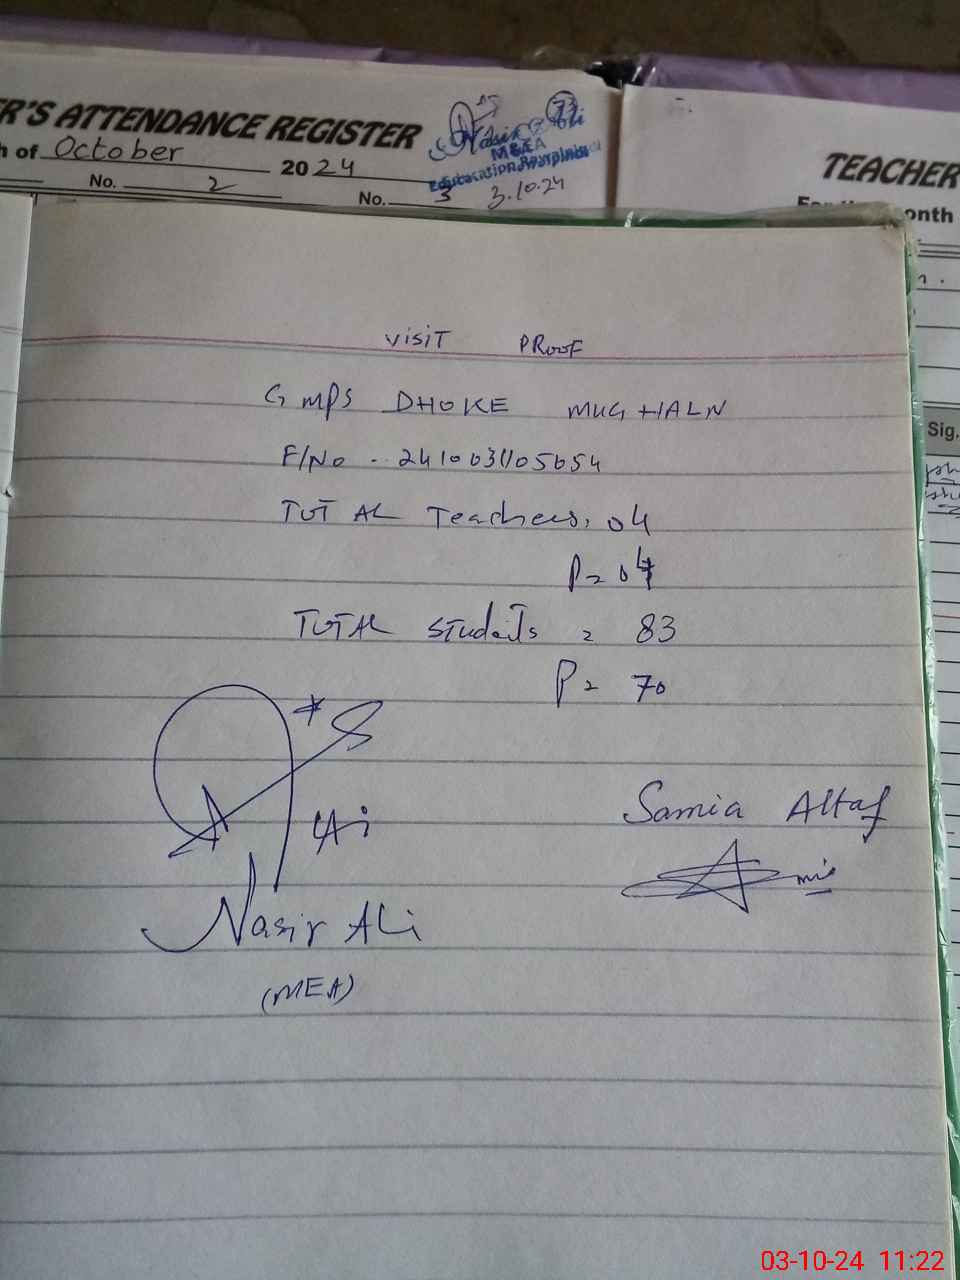 ER'S ATTENDANCE REGISTER
h of October 2024
No. 2 No. 3
73
Nasir Ali
M&EA
Education Rawalpindi
3.10.24
TEACHER
For the month
Sig.
VISIT PROOF
GMPS DHOKE MUGHALN
F/No .. 2410031105054
TOTAL Teachers, 04
P= 04
TOTAL Students = 83
P= 70
Nasir Ali
(MEA)
Samia Altaf
03-10-24 11:22